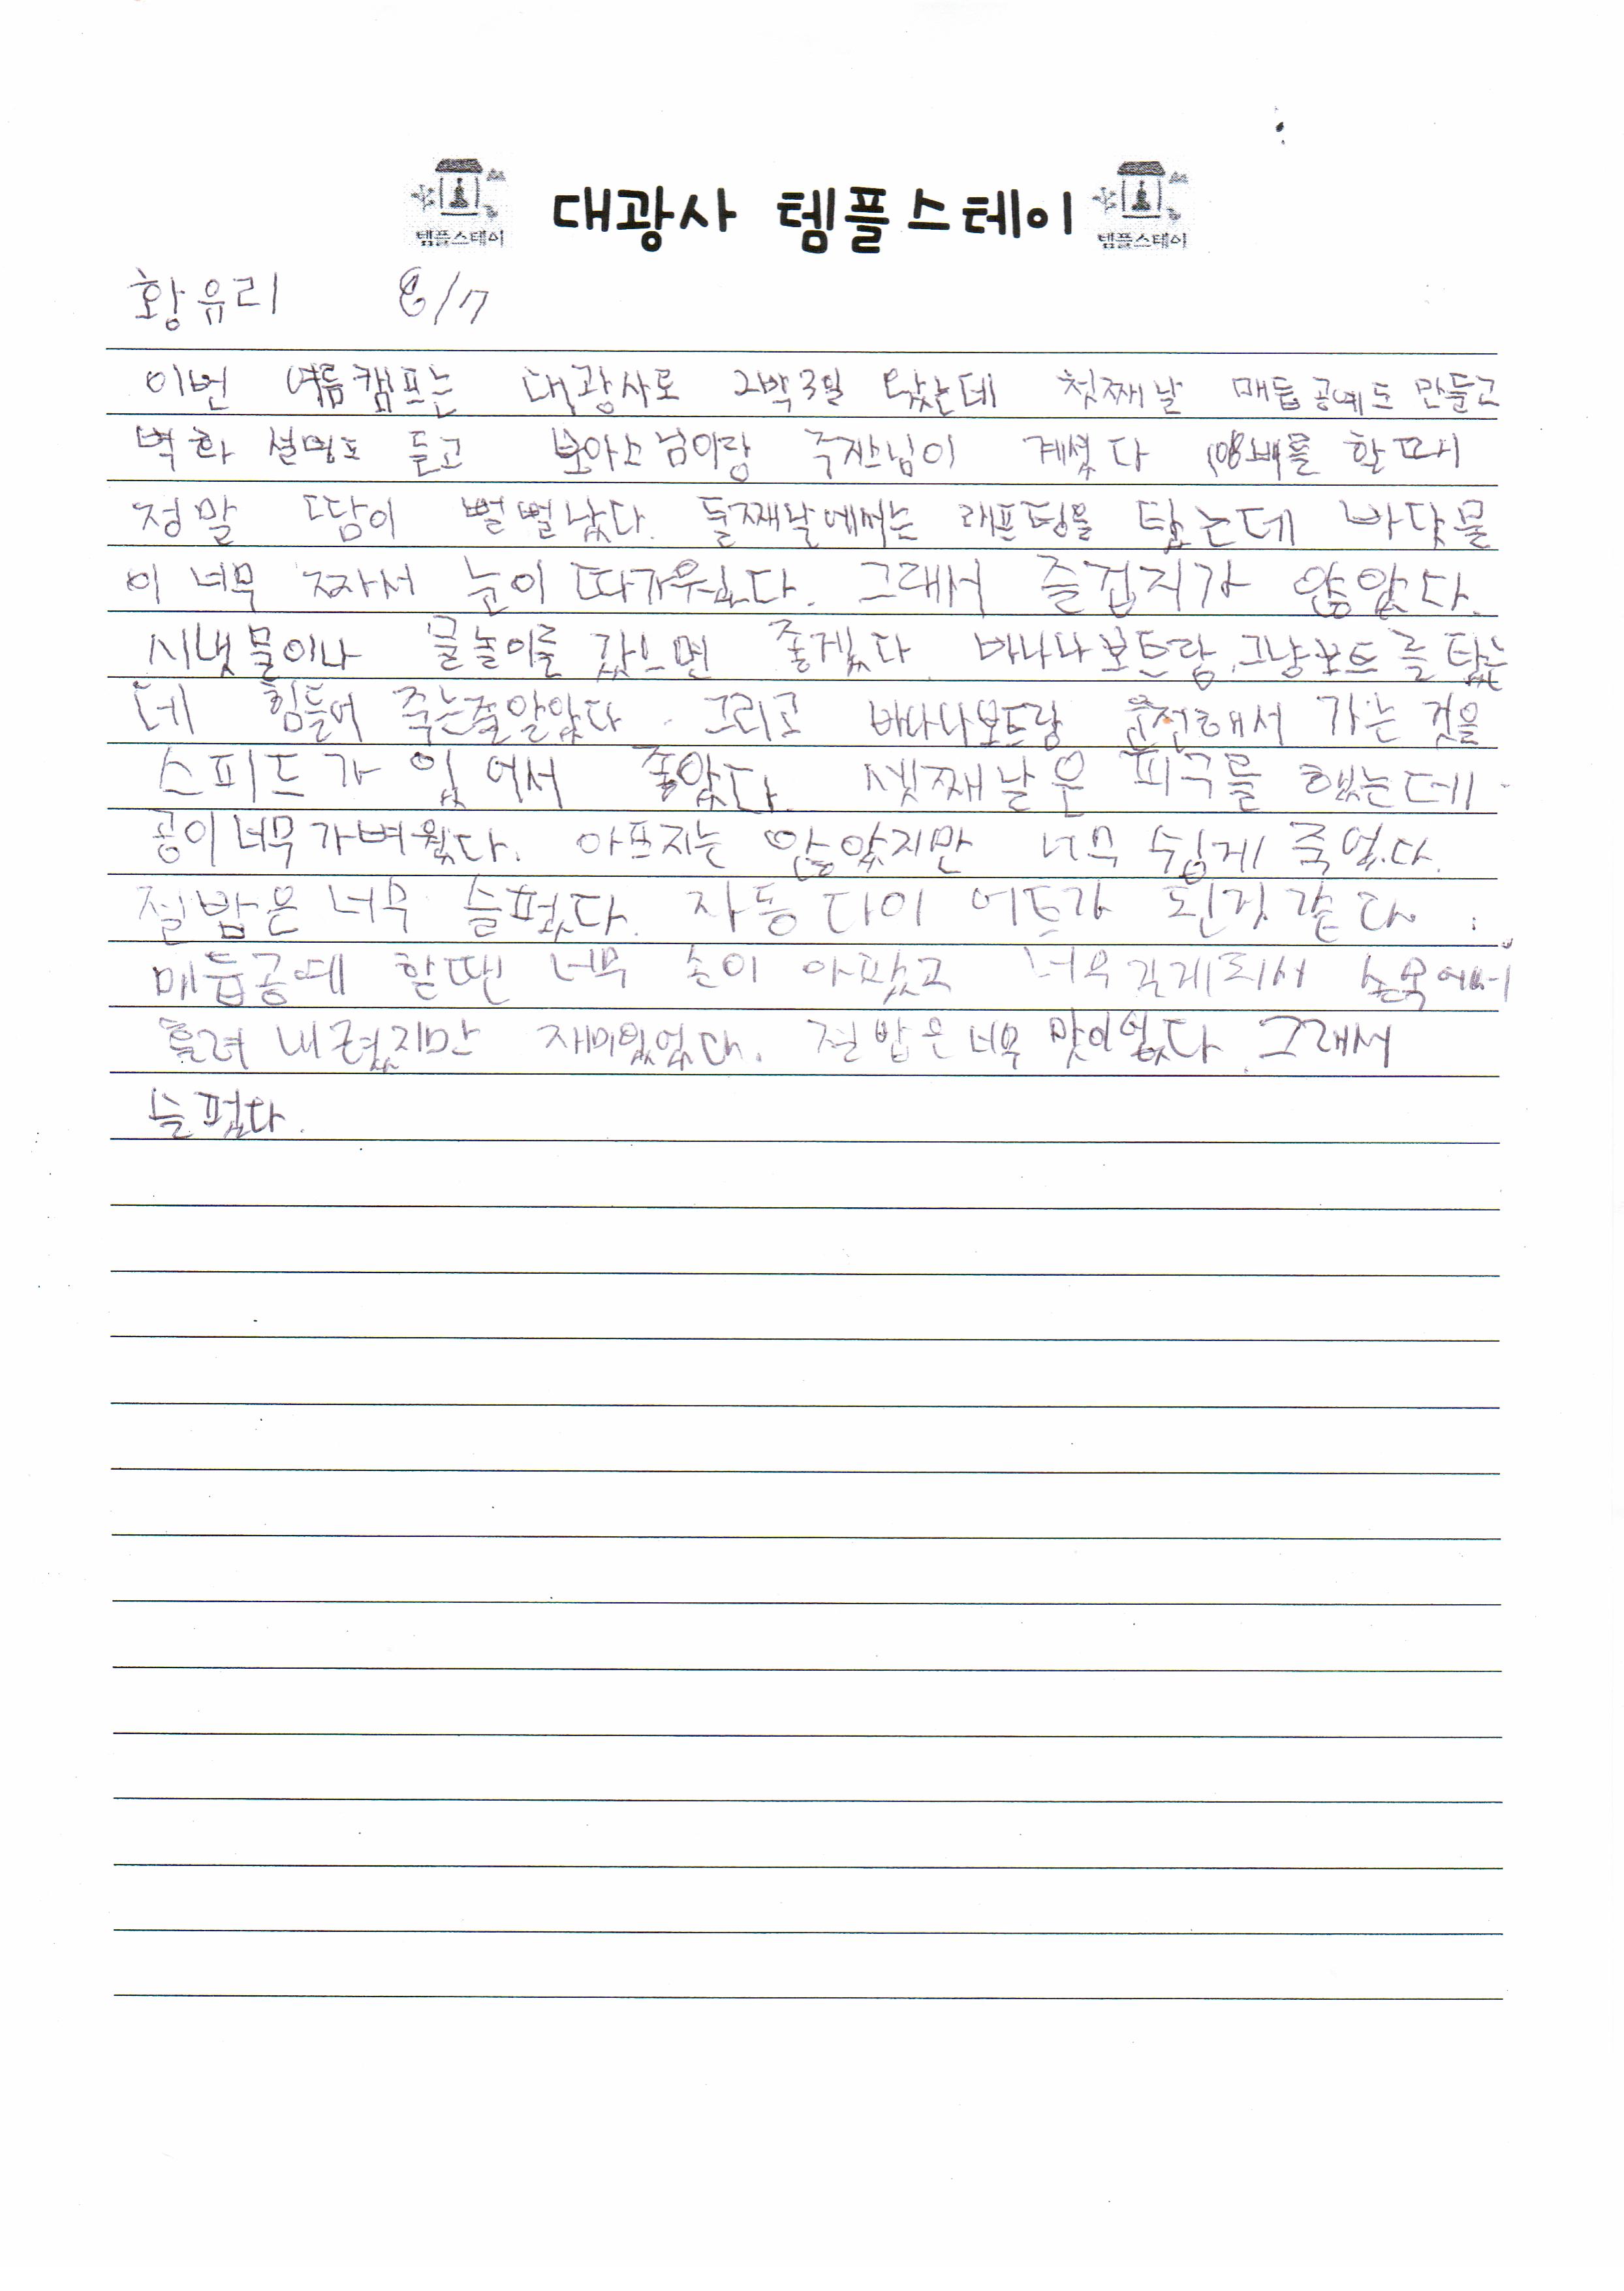 템플스테이 대광사 템플스테이 템플스테이
황유리 8/7
이번 여름캠프는 대광사로 2박3일 왔는데 첫째날 매듭공예도 만들고
벽화 설명도 듣고 보아스님이랑 주지스님이 계셨다 108배를 할 때
정말 땀이 뻘뻘났다. 둘째날에서는 래프팅을 탔는데 바닷물
이 너무 짜서 눈이 따가웠다. 그래서 즐겁지가 않았다.
시냇물이나 물놀이를 갔으면 좋겠다 바나나보트랑 그냥보트를 탔는
데 힘들어 죽는줄알았다. 그리고 바나나보트랑 운전해서 가는 것을
스피드가 있어서 좋았다. 셋째날은 피구를 했는데
공이 너무 가벼웠다. 아프지는 않았지만 너무 쉽게 죽었다.
절밥은 너무 슬펐다. 자동 다이어트가 된것 같다.
매듭공예 할땐 너무 손이 아팠고 너무 길게되서 손목에서
흘려 내렸지만 재미있었다. 절밥은 너무 맛이없다 그래서
슬펐다.